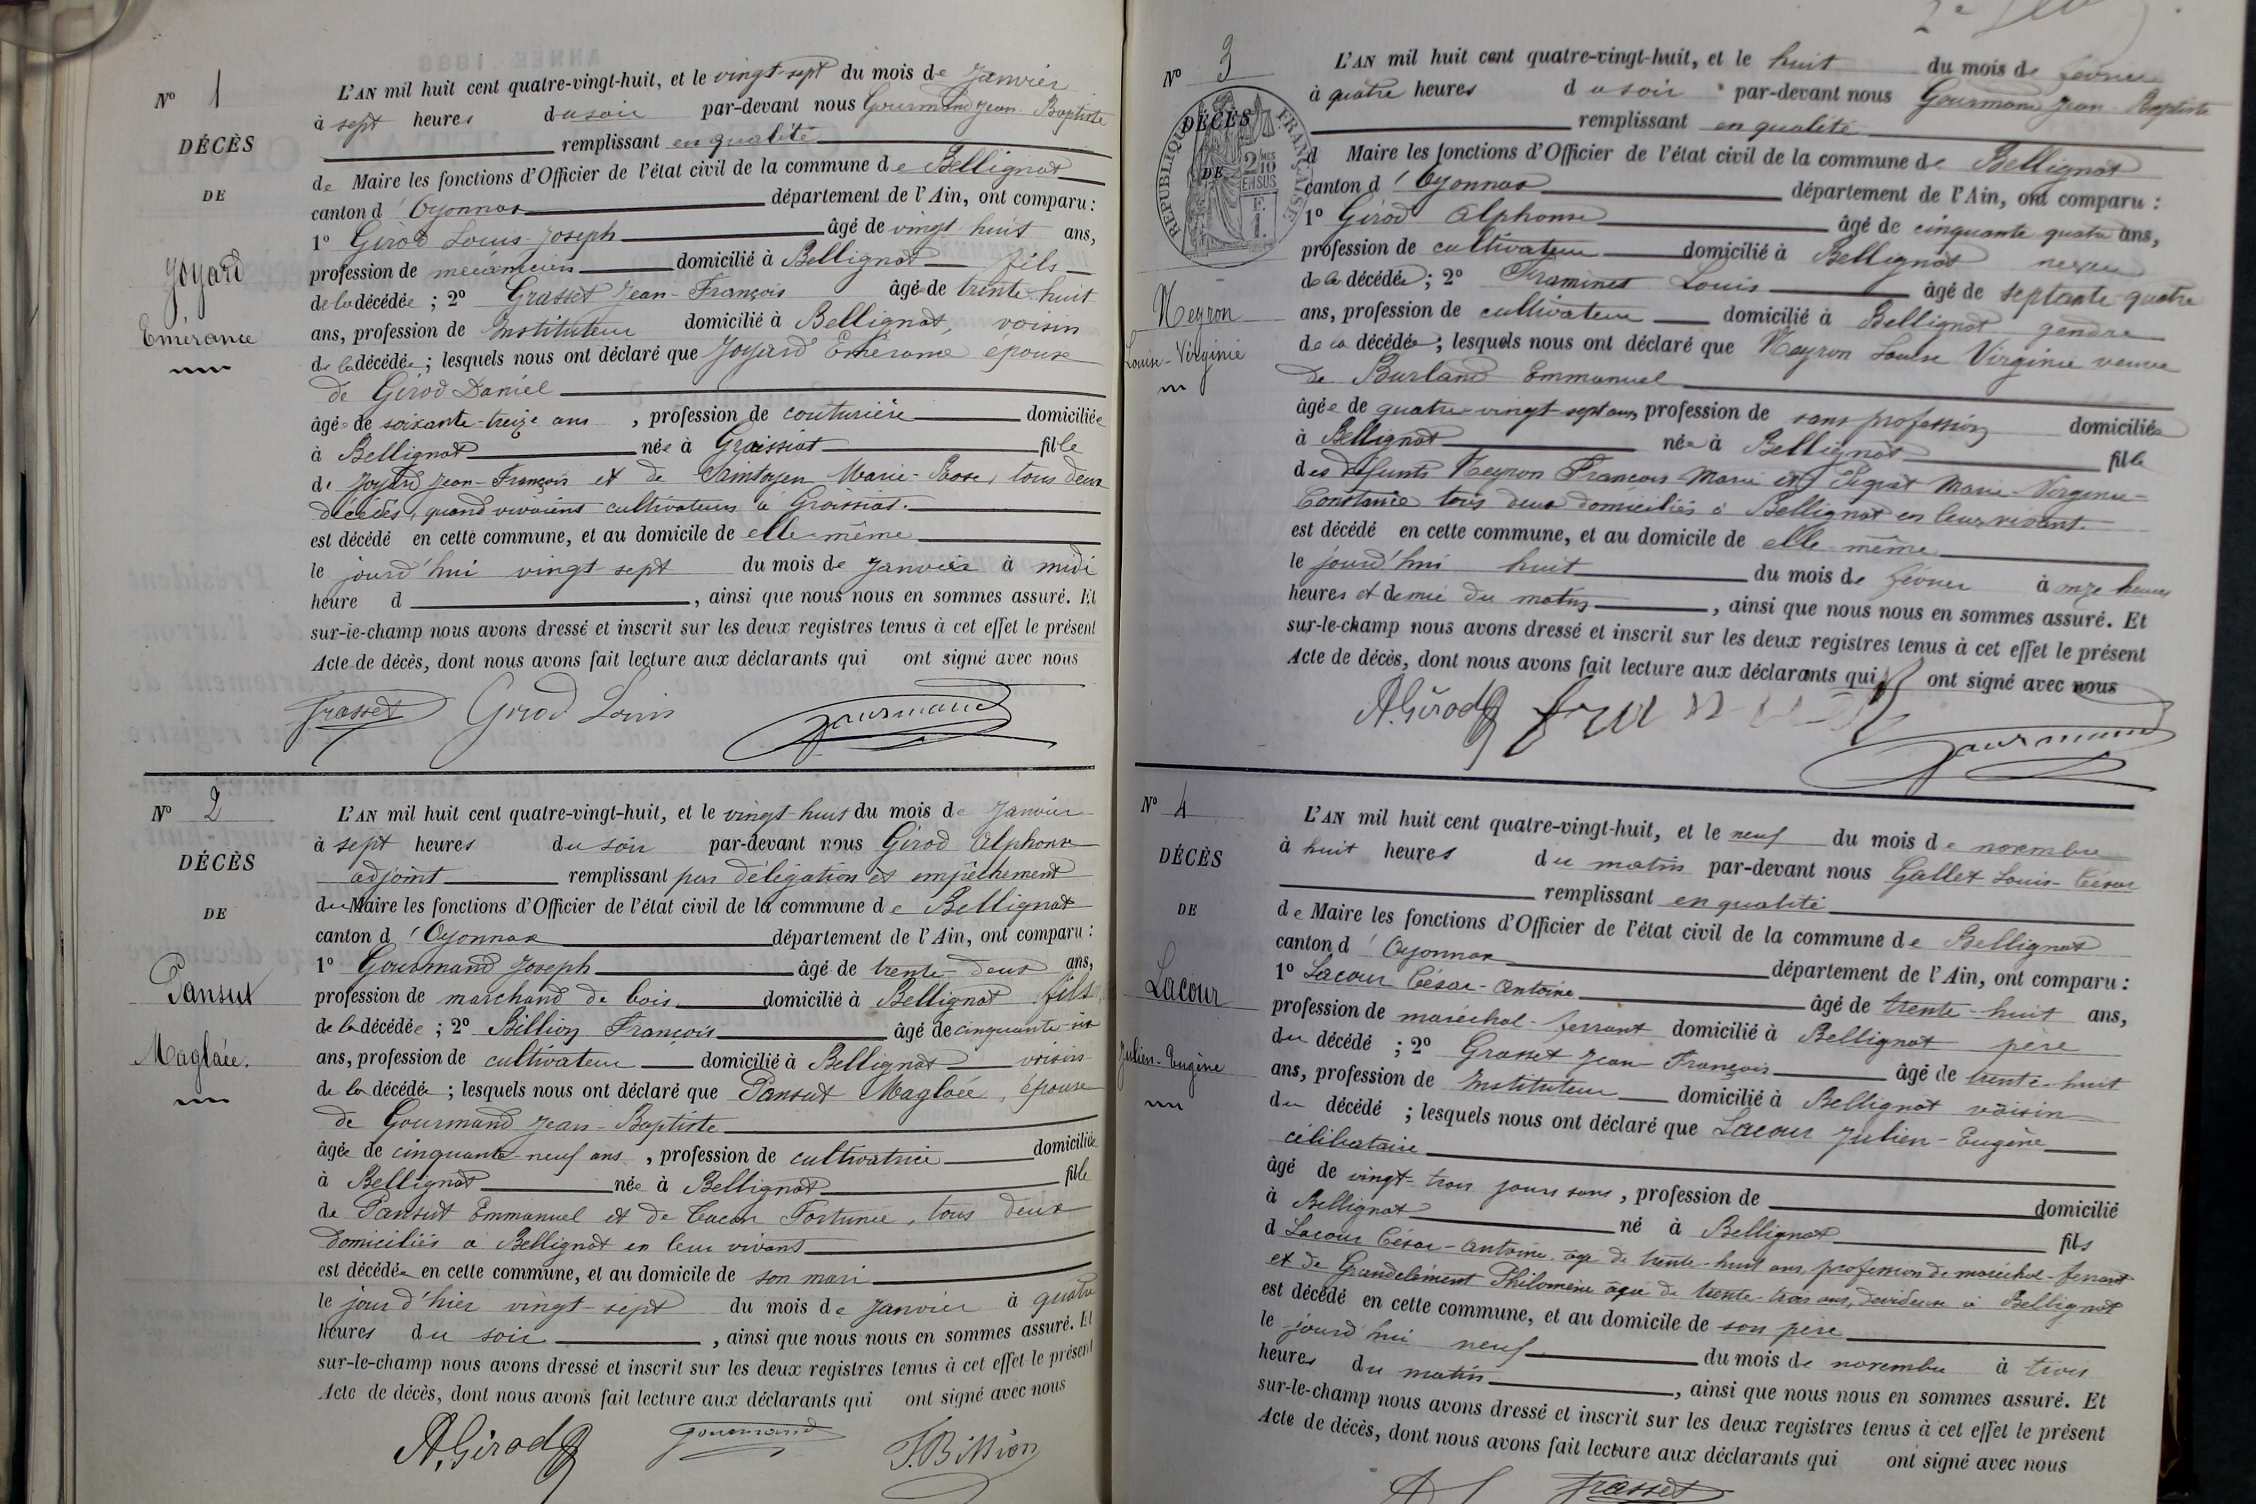 N° 1
DÉCÈS
DE
Joyard
Emérance
L'AN mil huit cent quatre-vingt-huit, et le vingt-sept du mois de Janvier
à sept heures du soir par-devant nous Gourmand Jean-Baptiste
remplissant en qualité
de Maire les fonctions d'Officier de l'état civil de la commune de Bellignat
canton d'Oyonnax département de l'Ain, ont comparu :
1° Girod Louis-Joseph âgé de vingt huit ans,
profession de mécanicien domicilié à Bellignat fils
de la décédée ; 2° Grasset Jean-François âgé de trente-huit
ans, profession de Instituteur domicilié à Bellignat, voisin
de la décédée ; lesquels nous ont déclaré que Joyard Emérance épouse
de Girod Daniel
âgée de soixante-treize ans, profession de couturière domiciliée
à Bellignat née à Groissiat fille
de Joyard Jean-François et de Saintoyen Marie-Rose, tous deux
décédés, quand vivaient cultivateurs à Groissiat.
est décédé en cette commune, et au domicile de elle-même
le jourd'hui vingt sept du mois de Janvier à midi
heure d , ainsi que nous nous en sommes assuré. Et
sur-le-champ nous avons dressé et inscrit sur les deux registres tenus à cet effet le présent
Acte de décès, dont nous avons fait lecture aux déclarants qui ont signé avec nous
Grasset Girod Louis Gourmand
N° 2
DÉCÈS
DE
Pansut
Magloée.
L'AN mil huit cent quatre-vingt-huit, et le vingt-huit du mois de Janvier
à sept heures du soir par-devant nous Girod Alphonse
adjoint remplissant par délégation et empêchement
du Maire les fonctions d'Officier de l'état civil de la commune de Bellignat
canton d'Oyonnax département de l'Ain, ont comparu :
1° Gourmand Joseph âgé de trente-deux ans,
profession de marchand de bois domicilié à Bellignat fils
de la décédée ; 2° Billion François âgé de cinquante-six
ans, profession de cultivateur domicilié à Bellignat voisin
de la décédée ; lesquels nous ont déclaré que Pansut Magloée, épouse
de Gourmand Jean-Baptiste
âgée de cinquante neuf ans, profession de cultivatrice domiciliée
à Bellignat née à Bellignat fille
de Pansut Emmanuel et de Fortunée, tous deux
domiciliés à Bellignat en leur vivant
est décédée en cette commune, et au domicile de son mari
le jour d'hier vingt-sept du mois de Janvier à quatre
heures du soir , ainsi que nous nous en sommes assuré. Et
sur-le-champ nous avons dressé et inscrit sur les deux registres tenus à cet effet le présent
Acte de décès, dont nous avons fait lecture aux déclarants qui ont signé avec nous
A. Girod Gourmand F. Billion
N° 3
DÉCÈS
DE
RÉPUBLIQUE FRANÇAISE
2/10 EN SUS
Neyron
Louise-Virginie
L'AN mil huit cent quatre-vingt-huit, et le huit du mois de février
à quatre heures du soir par-devant nous Gourmand Jean-Baptiste
remplissant en qualité
d Maire les fonctions d'Officier de l'état civil de la commune de Bellignat
canton d'Oyonnax département de l'Ain, ont comparu :
1° Girod Alphonse âgé de cinquante quatre ans,
profession de cultivateur domicilié à Bellignat neveu
de la décédée ; 2° Louis âgé de septante-quatre
ans, profession de cultivateur domicilié à Bellignat gendre
de la décédée ; lesquels nous ont déclaré que Neyron Louise Virginie veuve
de Burland Emmanuel
âgée de quatre-vingt-sept ans, profession de sans profession domiciliée
à Bellignat née à Bellignat fille
des défunts Neyron François-Marie et Marie-Virginie-
Constance tous deux domiciliés à Bellignat en leur vivant.
est décédé en cette commune, et au domicile de elle même
le jourd'hui huit du mois de février à onze heures
heures et demie du matin , ainsi que nous nous en sommes assuré. Et
sur-le-champ nous avons dressé et inscrit sur les deux registres tenus à cet effet le présent
Acte de décès, dont nous avons fait lecture aux déclarants qui ont signé avec nous
A. Girod Gourmand
N° 4
DÉCÈS
DE
Lacour
Julien-Eugène
L'AN mil huit cent quatre-vingt-huit, et le neuf du mois de novembre
à huit heures du matin par-devant nous Gallet Louis-César
remplissant en qualité
de Maire les fonctions d'Officier de l'état civil de la commune de Bellignat
canton d'Oyonnax département de l'Ain, ont comparu :
1° Lacour César-Antoine âgé de trente-huit ans,
profession de maréchal-ferrant domicilié à Bellignat père
du décédé ; 2° Grasset Jean François âgé de trente-huit
ans, profession de Instituteur domicilié à Bellignat voisin
du décédé ; lesquels nous ont déclaré que Lacour Julien-Eugène
célibataire
âgé de vingt-trois jours sans, profession de domicilié
à Bellignat né à Bellignat fils
d Lacour César-Antoine âgé de trente-huit ans, profession de maréchal-ferrant
et de Grandclément Philomène âgée de trente-trois ans, dévideuse à Bellignat
est décédé en cette commune, et au domicile de son père
le jourd'hui neuf du mois de novembre à trois
heures du matin , ainsi que nous nous en sommes assuré. Et
sur-le-champ nous avons dressé et inscrit sur les deux registres tenus à cet effet le présent
Acte de décès, dont nous avons fait lecture aux déclarants qui ont signé avec nous
Grasset